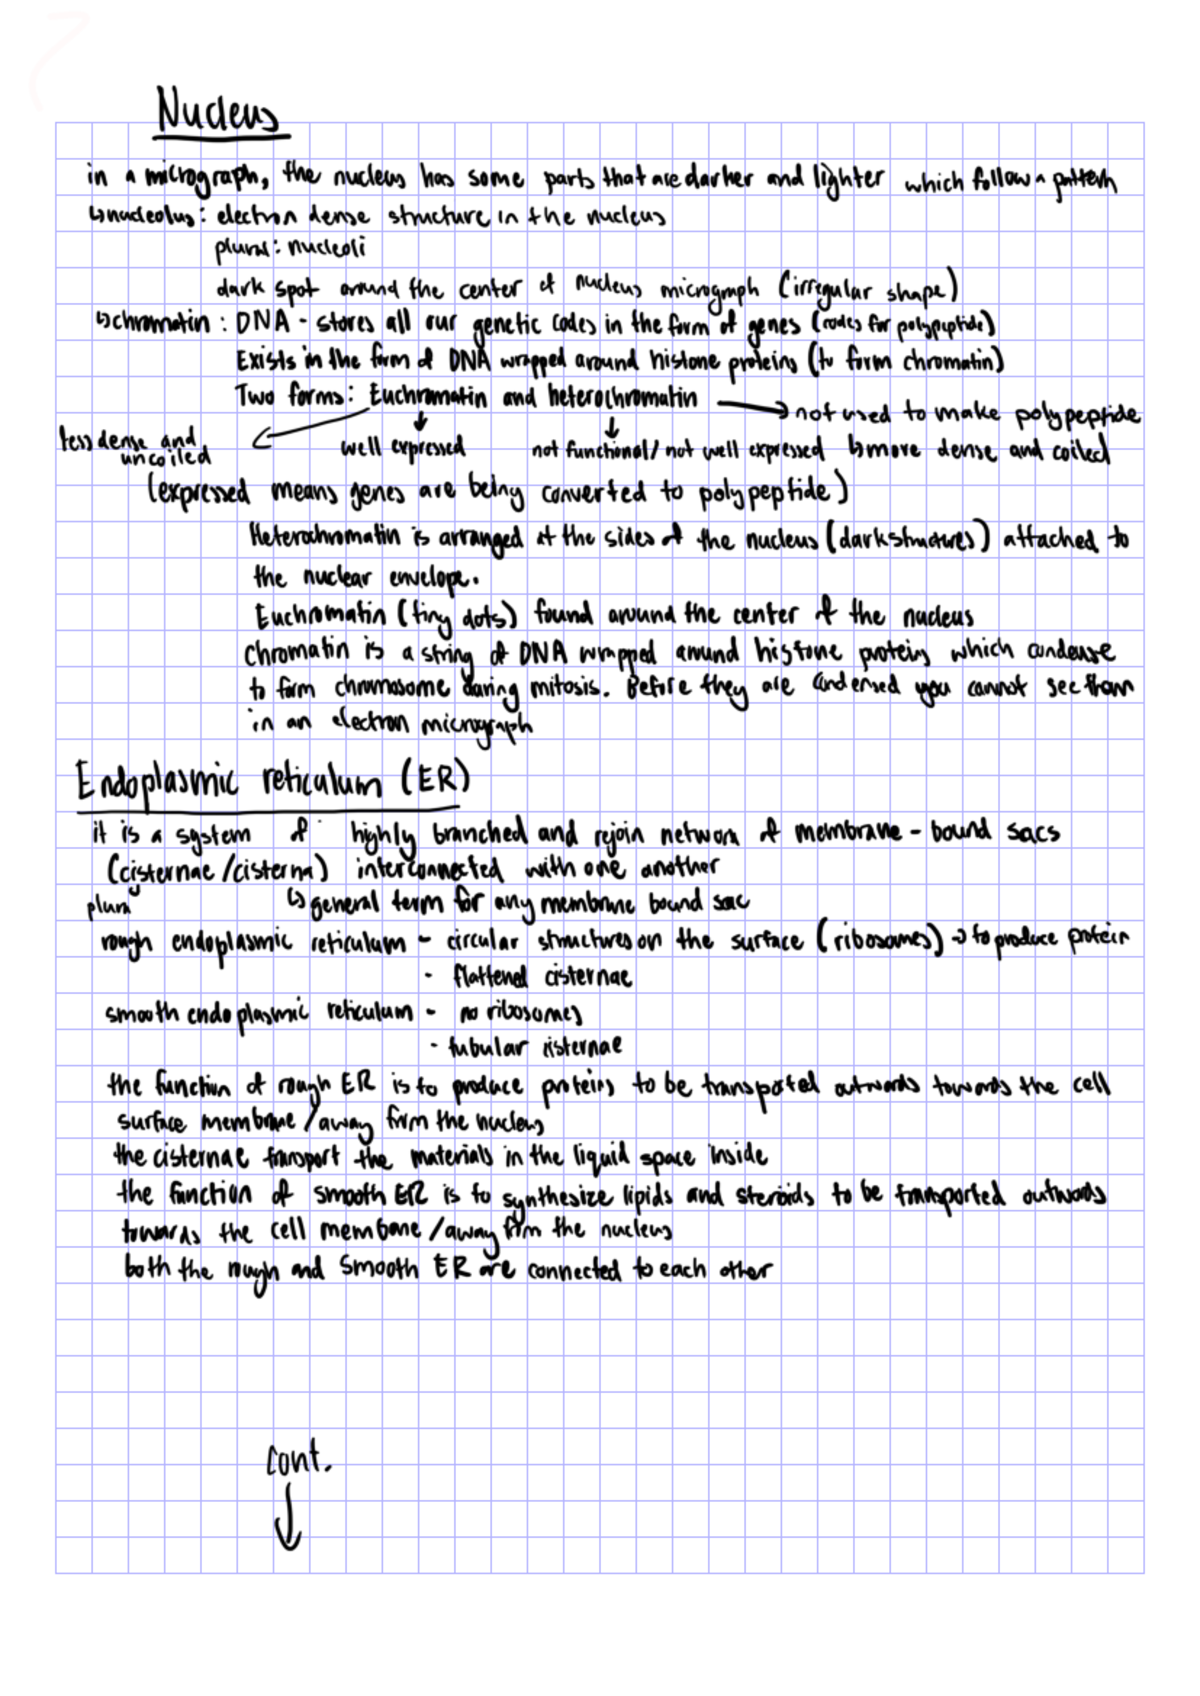 Nucleus
in a micrograph, the nucleus has some parts that are darker and lighter which follow a pattern
↳nucleolus: electron dense structure in the nucleus
plural: nucleoli
dark spot around the center of nucleus micrograph (irregular shape)
↳chromatin: DNA - stores all our genetic codes in the form of genes (codes for polypeptide)
Exists in the form of DNA wrapped around histone proteins (to form chromatin)
Two forms: Euchromatin and heterochromatin → not used to make polypeptide
less dense and uncoiled
well expressed
not functional/not well expressed
↳more dense and coiled
(expressed means genes are being converted to polypeptide)
Heterochromatin is arranged at the sides of the nucleus (dark structures) attached to
the nuclear envelope.
Euchromatin (tiny dots) found around the center of the nucleus
Chromatin is a string of DNA wrapped around histone proteins which condense
to form chromosome during mitosis. Before they are condensed you cannot see them
in an electron micrograph
Endoplasmic reticulum (ER)
it is a system of highly branched and rejoin network of membrane - bound sacs
(cisternae/cisterna) interconnected with one another
plura
↳ general term for any membrane bound sac
rough endoplasmic reticulum - circular structures on the surface (ribosomes) → to produce protein
- flattened cisternae
smooth endoplasmic reticulum - no ribosomes
- tubular cisternae
the function of rough ER is to produce proteins to be transported outwards towards the cell
surface membrane/away from the nucleus
the cisternae transport the materials in the liquid space inside
the function of smooth ER is to synthesize lipids and steroids to be transported outwards
towards the cell membane/away from the nucleus
both the rough and smooth ER are connected to each other
cont.
↓